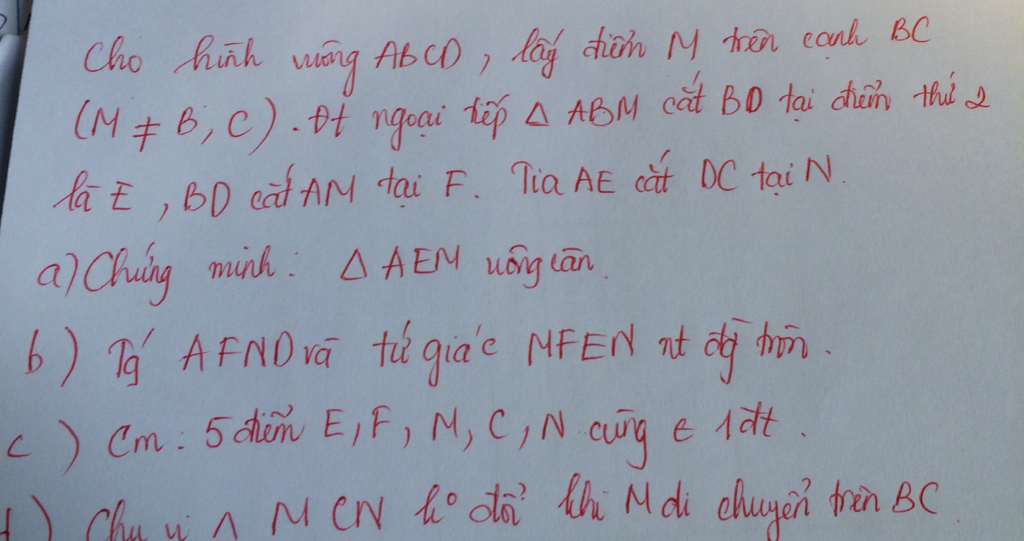 Cho hình vuông ABCD, lấy điểm M trên cạnh BC
(M ≠ B, C). Đt ngoại tiếp Δ ABM cắt BD tại điểm thứ 2
là E, BD cắt AM tại F. Tia AE cắt DC tại N.
a) Chứng minh: Δ AEM uông cân.
b) Tg AFND và tứ giác MFEN nt đg tròn.
c) Cm: 5 điểm E, F, M, C, N cùng ∈ 1 đt.
d) Chu vi Δ MCN ko đổi khi M di chuyển trên BC.